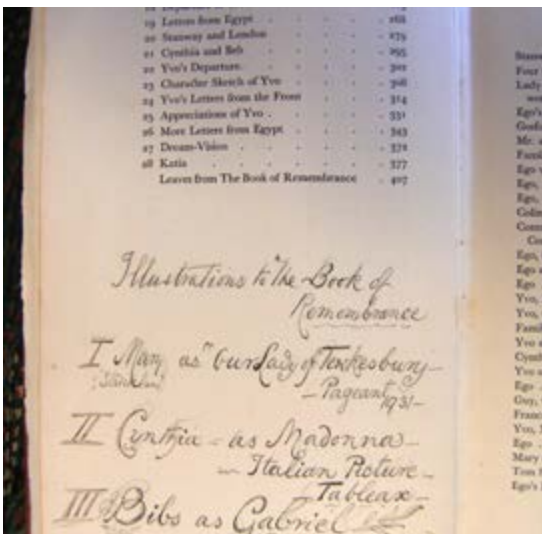 19 Letters from Egypt 268
20 Stanway and London 279
21 Cynthia and Beb 295
22 Yvo's Departure. 302
23 Character Sketch of Yvo 308
24 Yvo's Letters from the Front 314
25 Appreciations of Yvo . 331
26 More Letters from Egypt 343
27 Dream-Vision 372
28 Katia 377
Leaves from The Book of Remembrance 407
Illustrations to "The Book of
Remembrance
I Mary as "Our Lady of Tewkesbury—
— Pageant 1931—
II Cynthia - as Madonna—
— Italian Picture—
— Tableax—
III Bibs as Gabriel
Four
Lady
Ego's
Mr.
Ego
Ego,
Ego,
Ego,
Ego
Ego
Yvo,
Yvo,
Yvo
Yvo
Ego
Guy,
Yvo,
Ego
Mary
Tom
Ego's